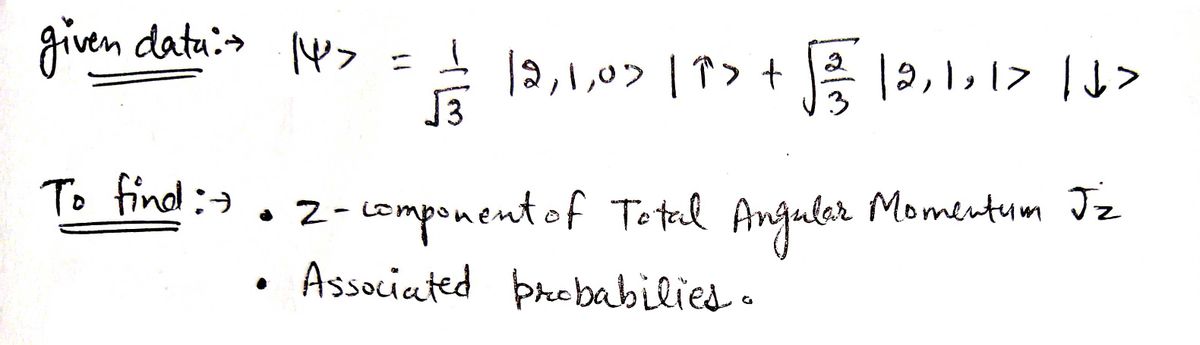 given data:→ |Ψ> = 1/√3 |2,1,0> |↑> + √2/3 |2,1,1> |↓>
To find:→ • Z-component of Total Angular Momentum Jz
• Associated probabilies.